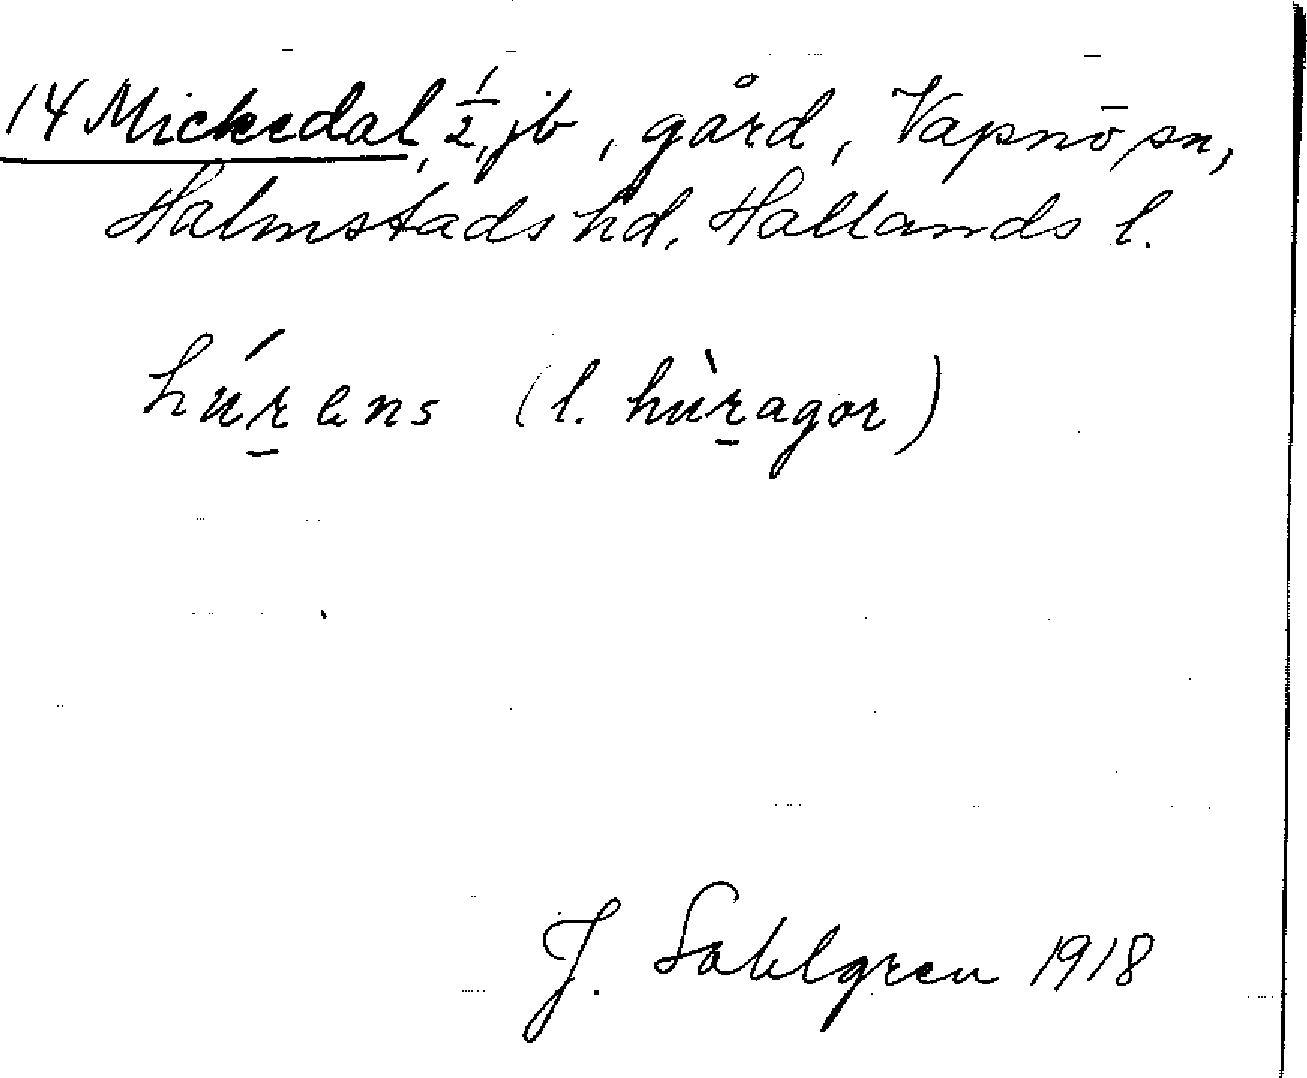 14 Mickedal, 1/2, jb, gård, Vapnö sn,
Halmstads hd, Hallands l.
hú̱rens (l. hùṟagor)
J. Sahlgren 1918